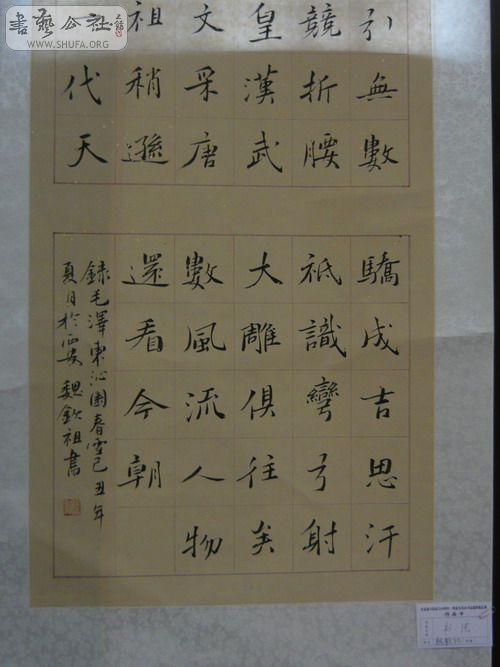 書藝公社
WWW.SHUFA.ORG
引無數
競折腰
皇漢武
文采唐
祖稍遜
代天
驕成吉思汗
祇識彎弓射
大雕俱往矣
數風流人物
還看今朝
錄毛澤東沁園春雪己丑年
夏月於西安 魏欽祖書